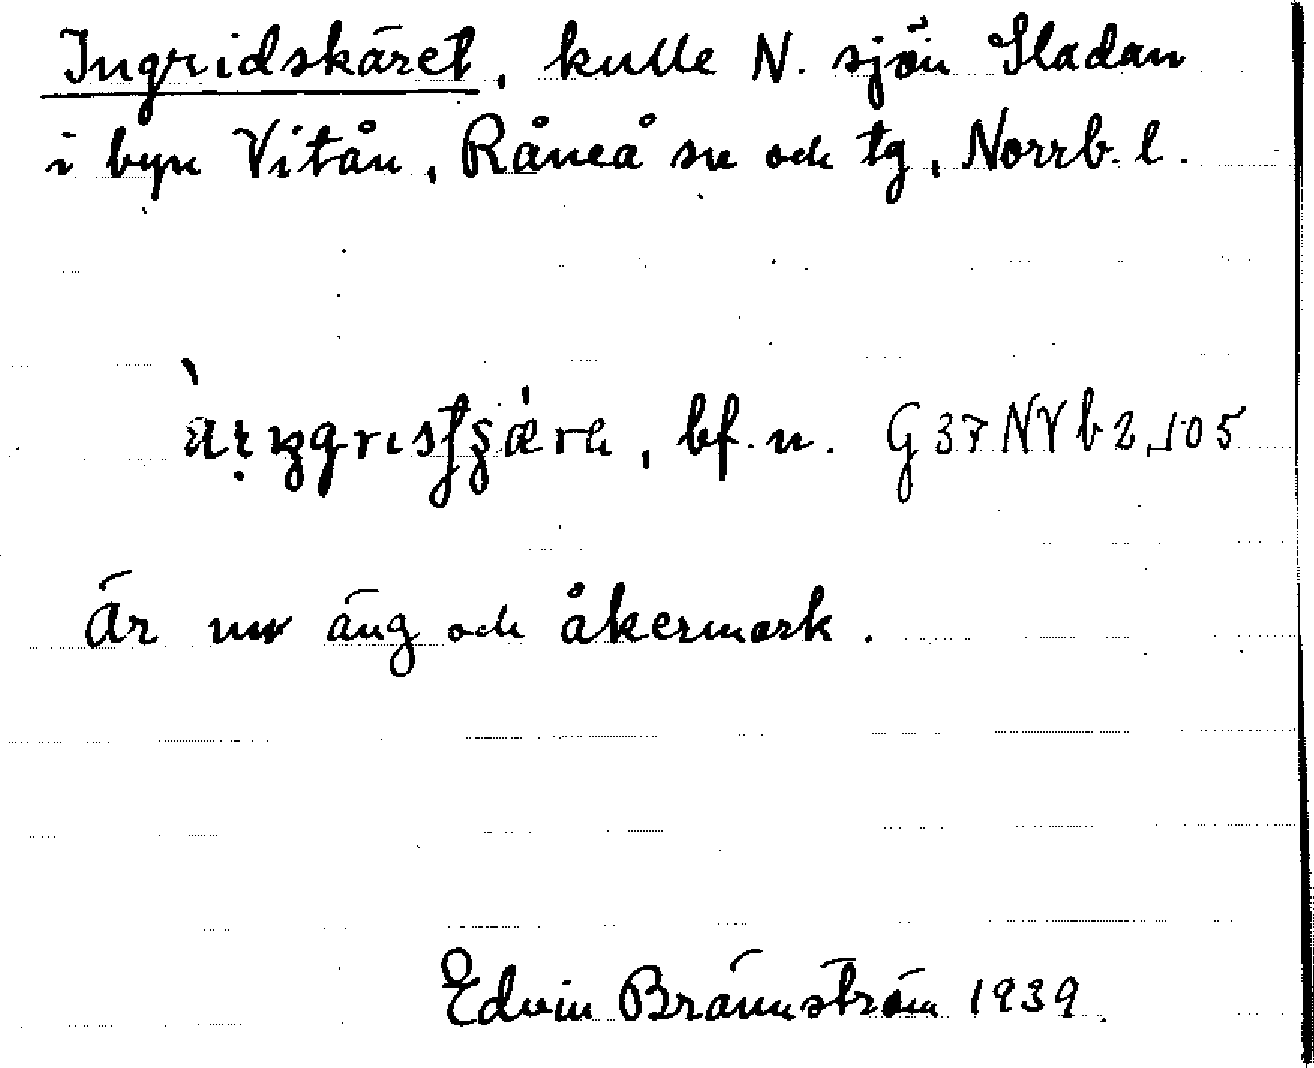 Ingridskäret, kulle N. sjön Sladan
i byn Vitån, Råneå sn och tg, Norrb. l.
bf. n. G37NVb2,105
Är nu äng och åkermark.
Edvin Brännström 1939